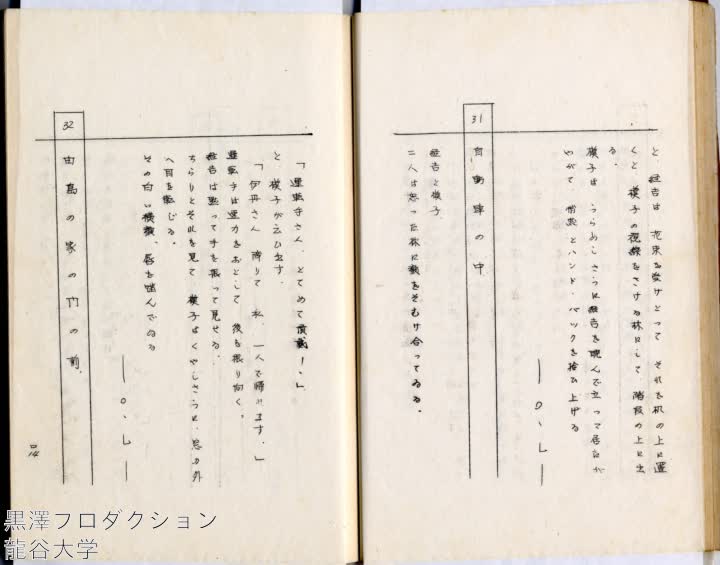 と 鉱吉は 花束を受けとって それを机の上に置
くと 横子の視線をさける様にして 階段の上に出
る。
横子は うらめしさうに鉱吉を睨んで立って居たが
やがて 帽子とハンド・バックを拾ひ上げる
——O・L——
31
自動車の中
鉱吉と横子。
二人は怒った様に顔をそむけ合ってゐる。
「運転手さん、とめて頂戴!」
と 横子が云ひ出す。
「伊丹さん 降りて 私 一人で帰れます。」
運転手は速力をおとして 後を振り向く。
鉱吉は黙って手を振って見せる。
ちらりとそれを見て 横子はくやしさうに 窓の外
へ目を転じる。
その白い横顔、唇を噛んでゐる
——O・L——
32
由島の家の門の前
14
黒澤プロダクション
龍谷大学